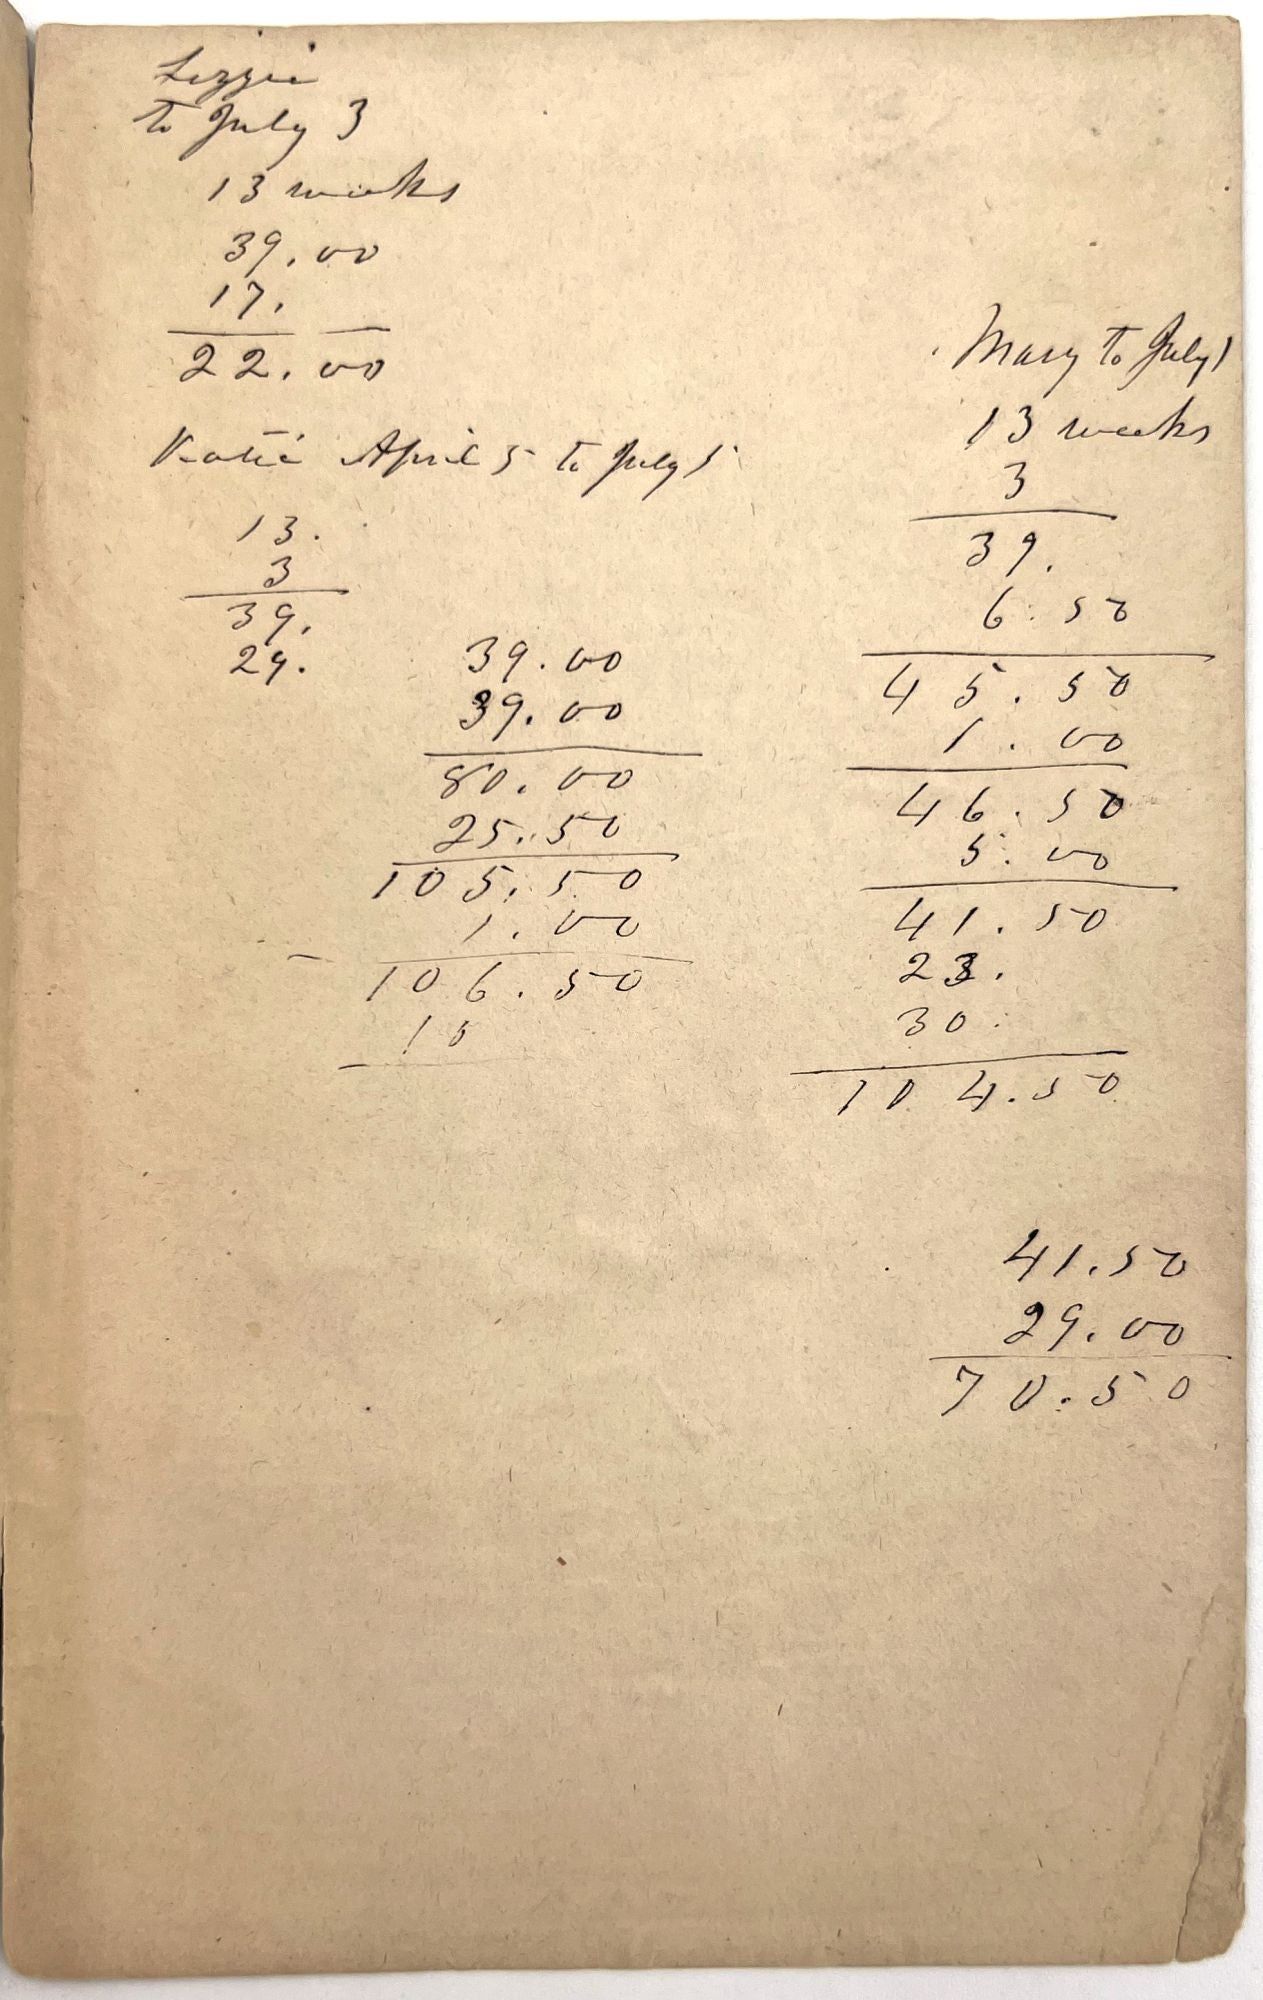 Lizzie
to July 3
13 weeks
39.00
17.
22.00
Katie April 5 to July 5
13.
3
39.
29.
39.00
39.00
80.00
25.50
105.50
1.00
106.50
15
Mary to July 1
13 weeks
3
39.
6.50
45.50
1.00
46.50
5.00
41.50
23.
30.
104.50
41.50
29.00
70.50